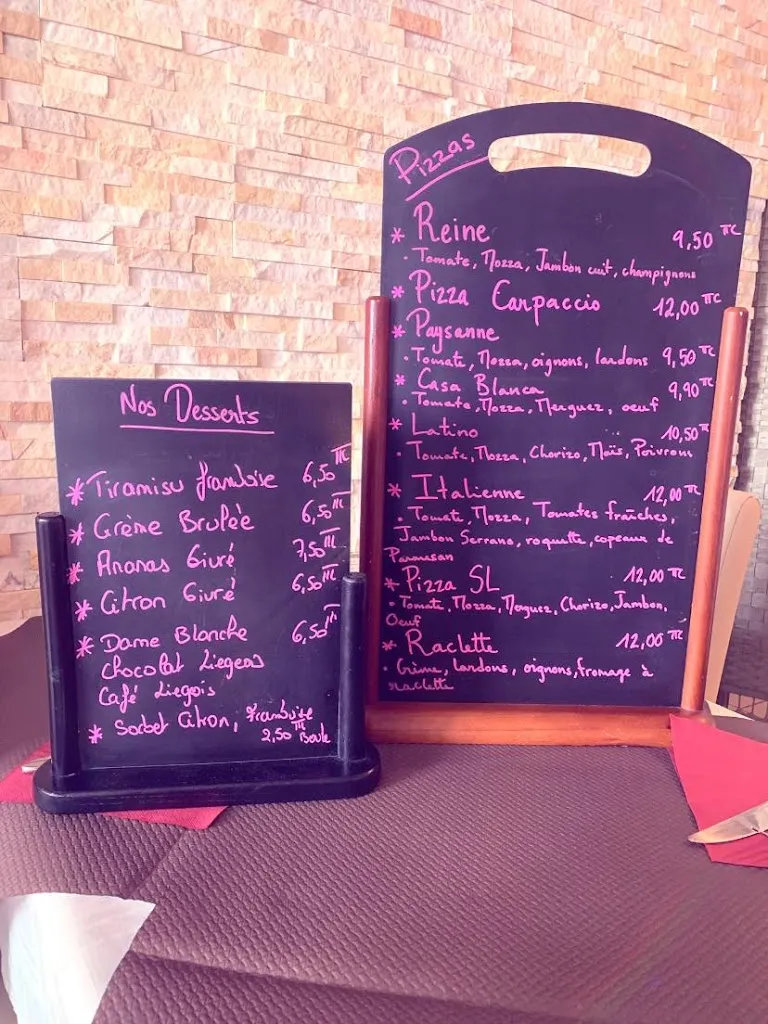 Nos Desserts
* Tiramisu framboise 6,50 TTC
* Crème Brulée 6,50 TTC
* Ananas Givré 7,50 TTC
* Citron Givré 6,50 TTC
* Dame Blanche 6,50 TTC
Chocolat Liegeois
Café Liegois
* Sorbet Citron, framboise
2,50 TTC Boule
Pizzas
* Reine 9,50 TTC
• Tomate, Mozza, Jambon cuit, champignons
* Pizza Carpaccio 12,00 TTC
* Paysanne
• Tomate, Mozza, oignons, lardons 9,50 TTC
* Casa Blanca 9,90 TTC
• Tomate, Mozza, Merguez, oeuf
* Latino 10,50 TTC
• Tomate, Mozza, Chorizo, Maïs, Poivrons
* Italienne 12,00 TTC
• Tomate, Mozza, Tomates fraîches,
Jambon Serrano, roquette, copeaux de
Parmesan
* Pizza SL 12,00 TTC
• Tomate, Mozza, Merguez, Chorizo, Jambon,
Oeuf
* Raclette 12,00 TTC
• Crème, lardons, oignons, fromage à
raclette